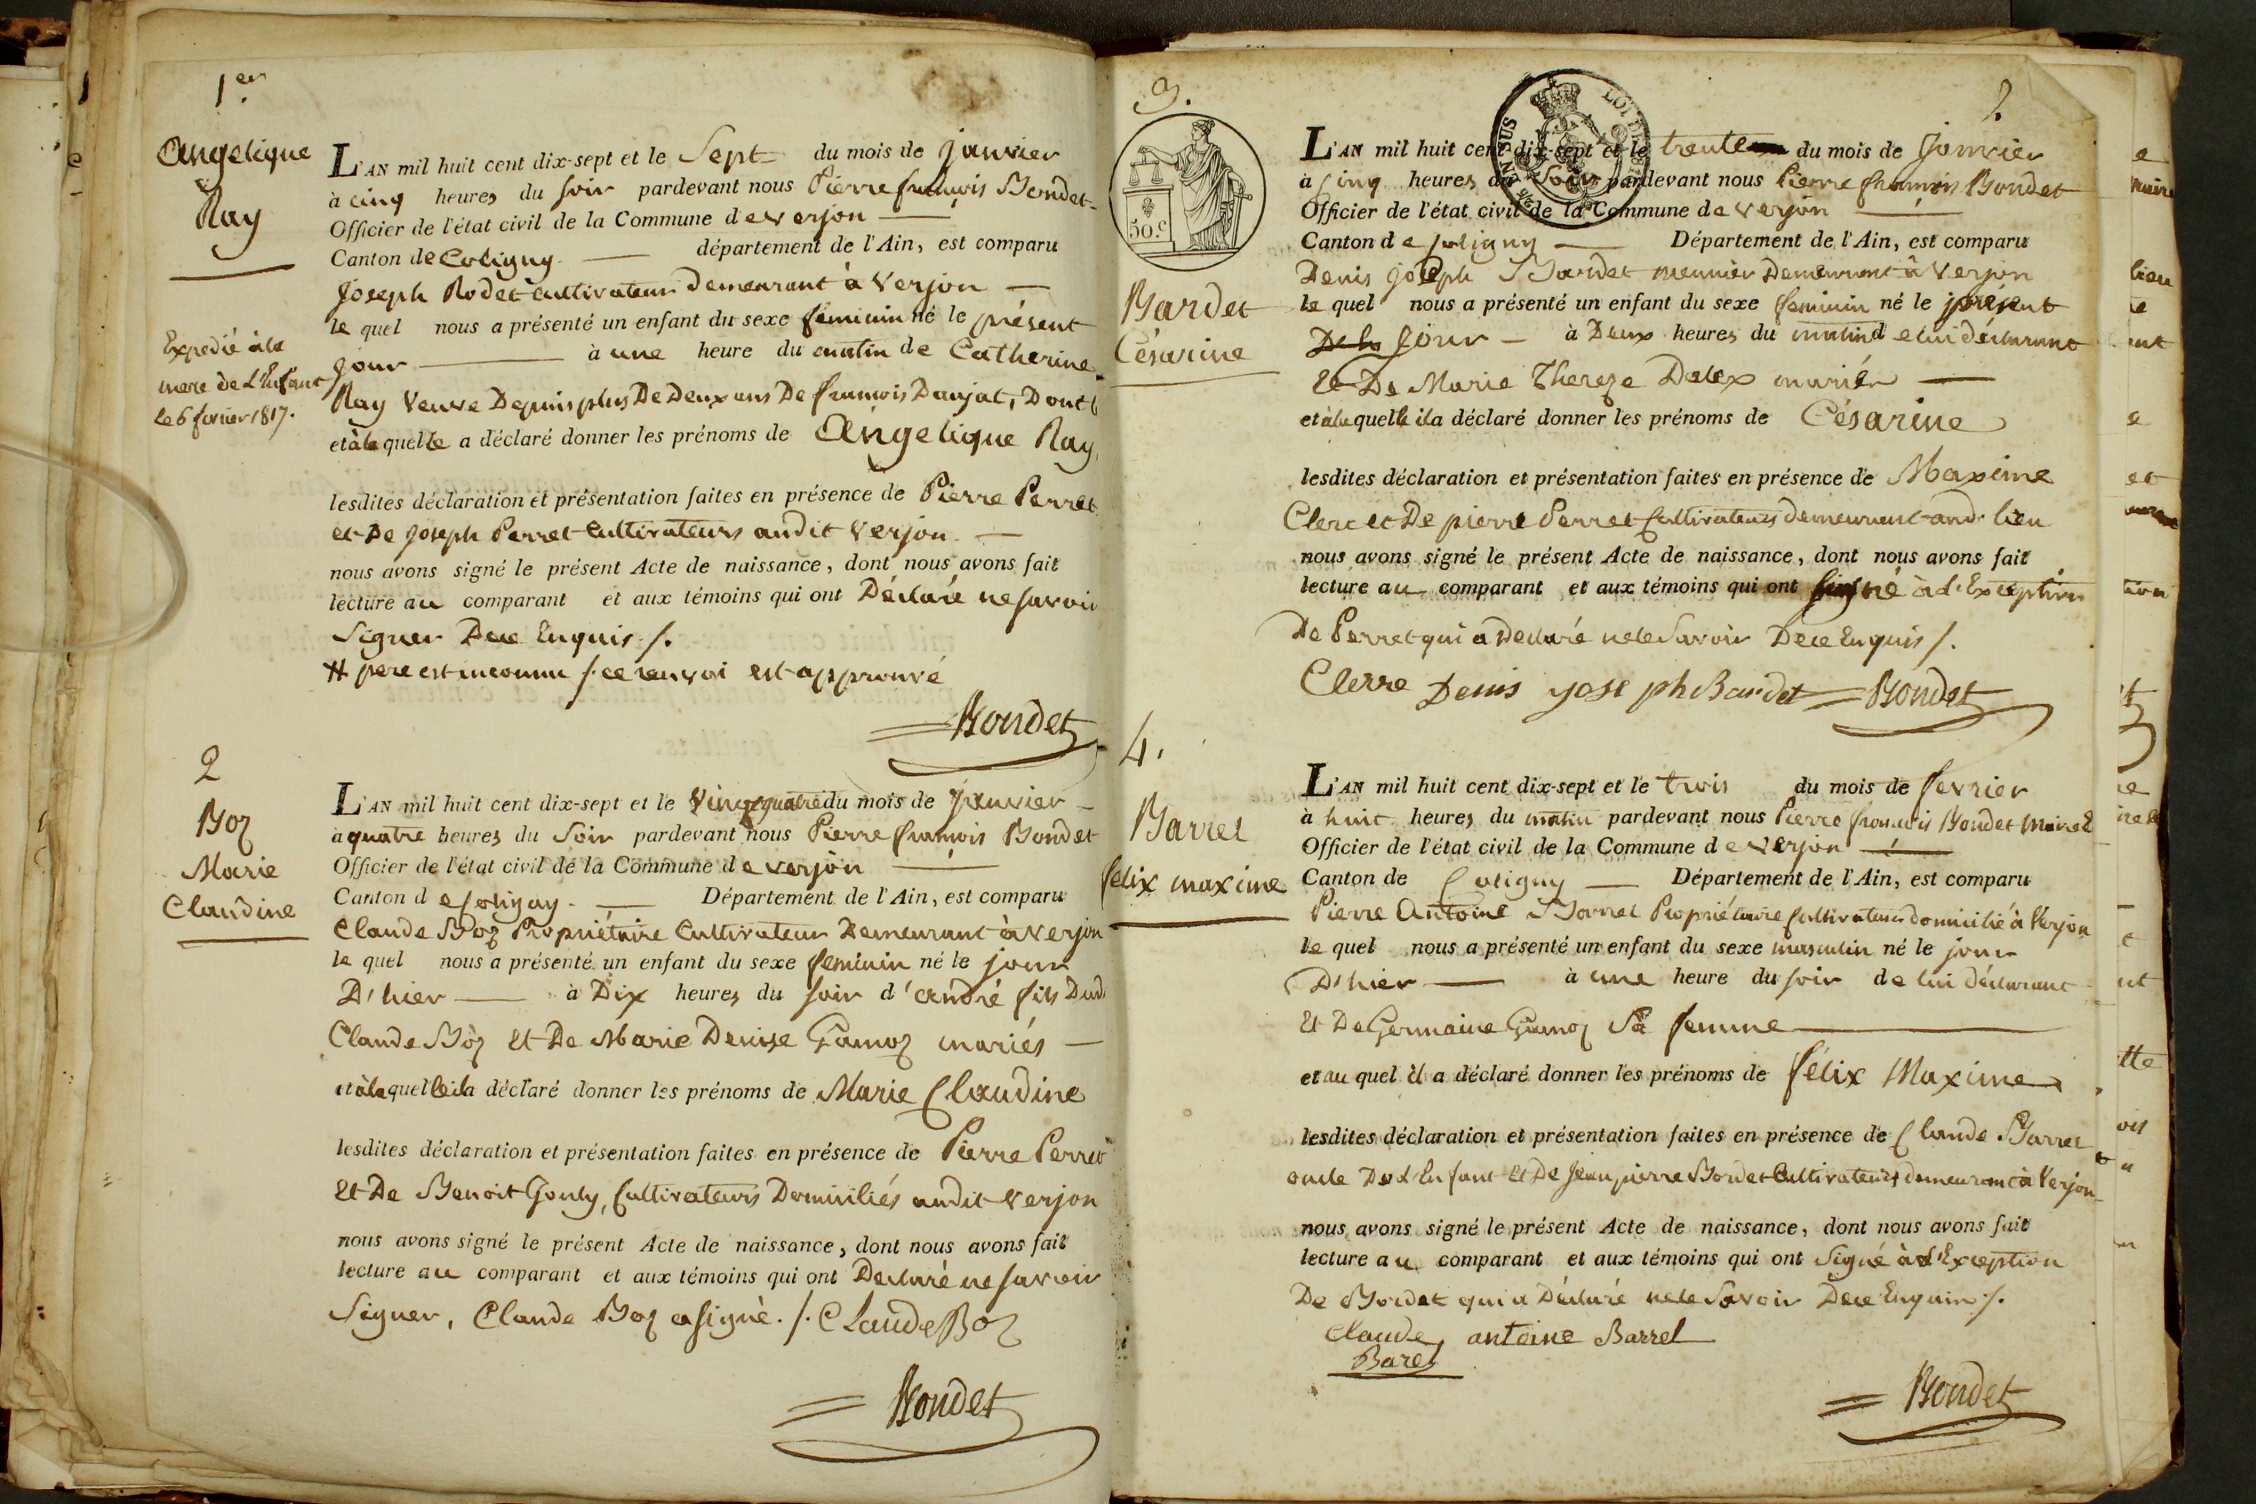 1er
Angelique
Ray
L'AN mil huit cent dix-sept et le Sept du mois de janvier
à cinq heures du soir pardevant nous Pierre françois Bondet
Officier de l'état civil de la Commune de verjon
Canton de Coligny département de l'Ain, est comparu
Joseph Rodet cultivateur demeurant à Verjon
le quel nous a présenté un enfant du sexe feminin né le présent
jour à une heure du matin de Catherine
Expedié à la
mere de L'Enfant
Le 6 fevrier 1817.
Ray Veuve Depuis plus De Deux ans De françois Danjat, Dont
et à la quelle a déclaré donner les prénoms de Angelique Ray
lesdites déclaration et présentation faites en présence de Pierre Perret
et De Joseph Perret Cultivateurs audit Verjon
nous avons signé le présent Acte de naissance, dont nous avons fait
lecture au comparant et aux témoins qui ont Déclaré ne savoir
Signer De ce Enquis /.
# pere est inconnu /. ce renvoi est approuvé
Bondet
2
Boz
Marie
Claudine
L'AN mil huit cent dix-sept et le Vingt quatre du mois de janvier
à quatre heures du Soir pardevant nous Pierre françois Bondet
Officier de l'état civil de la Commune de verjon
Canton de Coligny Département de l'Ain, est comparu
Claude Boz Propriétaire Cultivateur Demeurant à Verjon
le quel nous a présenté un enfant du sexe feminin né le jour
D'hier à Dix heures du soir d'andré fils Dud
Claude Boz Et De Marie Denise Gamoz mariés
et à la quelle il a déclaré donner les prénoms de Marie Claudine
lesdites déclaration et présentation faites en présence de Pierre Perret
Et De Benoit Gouly, Cultivateurs Domiciliés audit verjon
nous avons signé le présent Acte de naissance, dont nous avons fait
lecture au comparant et aux témoins qui ont Declaré ne savoir
Signer, Claude Boz a signé. /. Claude Boz
Bondet
3.
2.
50.c
LOI DE
EN SUS
Bardet
Césarine
L'AN mil huit cent dix-sept et le trente du mois de Janvier
à Cinq heures du Soir pardevant nous Pierre françois Bondet
Officier de l'état civil de la Commune de verjon
Canton de Coligny Département de l'Ain, est comparu
Denis Joseph Bardet meunier Demeurant à Verjon
le quel nous a présenté un enfant du sexe feminin né le présent
Jour à Deux heures du matin de lui déclarant
Et De Marie Thereze Dalex mariés
et à la quelle il a déclaré donner les prénoms de Césarine
lesdites déclaration et présentation faites en présence de Maxime
Clerc et De pierre Perret Cultivateurs demeurant aud. lieu
nous avons signé le présent Acte de naissance, dont nous avons fait
lecture au comparant et aux témoins qui ont signé à l'Exception
De Perret qui a Declaré ne le Savoir De ce Enquis /.
Clerre Denis yoseph Bardet Bondet
4.
Barrel
félix maxime
L'AN mil huit cent dix-sept et le trois du mois de fevrier
à huit heures du matin pardevant nous Pierre françois Bondet Maire &
Officier de l'état civil de la Commune de verjon
Canton de Coligny Département de l'Ain, est comparu
Pierre Antoine Barrel Propriétaire Cultivateur domicilié à Verjon
le quel nous a présenté un enfant du sexe masculin né le jour
D'hier à une heure du soir de lui déclarant
Et De Germaine Gamoz Sa femme
et au quel il a déclaré donner les prénoms de félix Maxime
lesdites déclaration et présentation faites en présence de Claude Barrel
oncle De L'Enfant Et De Jean pierre Bordet Cultivateurs demeurant à Verjon
nous avons signé le présent Acte de naissance, dont nous avons fait
lecture au comparant et aux témoins qui ont Signé à l'Exception
De Bordet qui a Déclaré ne le Savoir De ce Enquis /.
Claude antoine Barrel
Barel
Bondet